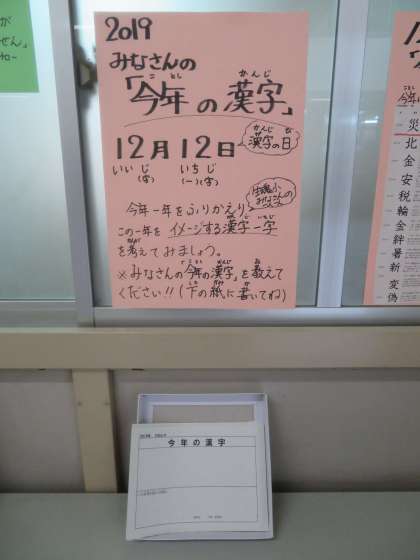 2019
みなさんの
「今年の漢字」
ことし かんじ
12月12日
いい じ いちじ
(字) (一)(字)
漢字の日
かんじ ひ
みなさんの
今年一年をふりかえり
この一年をイメージする漢字一字
を考えてみましょう。
※みなさんの「今年の漢字」を教えて
ください!!(下の紙に書いてね)
今年の漢字
災
北
金
安
税
輪
金
絆
暑
新
変
偽